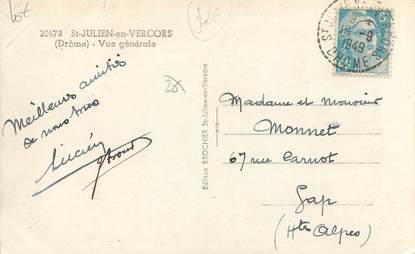 Lot
30473 St-JULIEN-en-VERCORS
(Drôme) - Vue générale
Meilleures amitiés
de nous tous
Lucien
Edition BROCHIER St-Julien-en-Vercors
18-9
1949
DROME
Madame et Monsieur
Monnet
67 rue Carnot
Gap
(Htes Alpes)